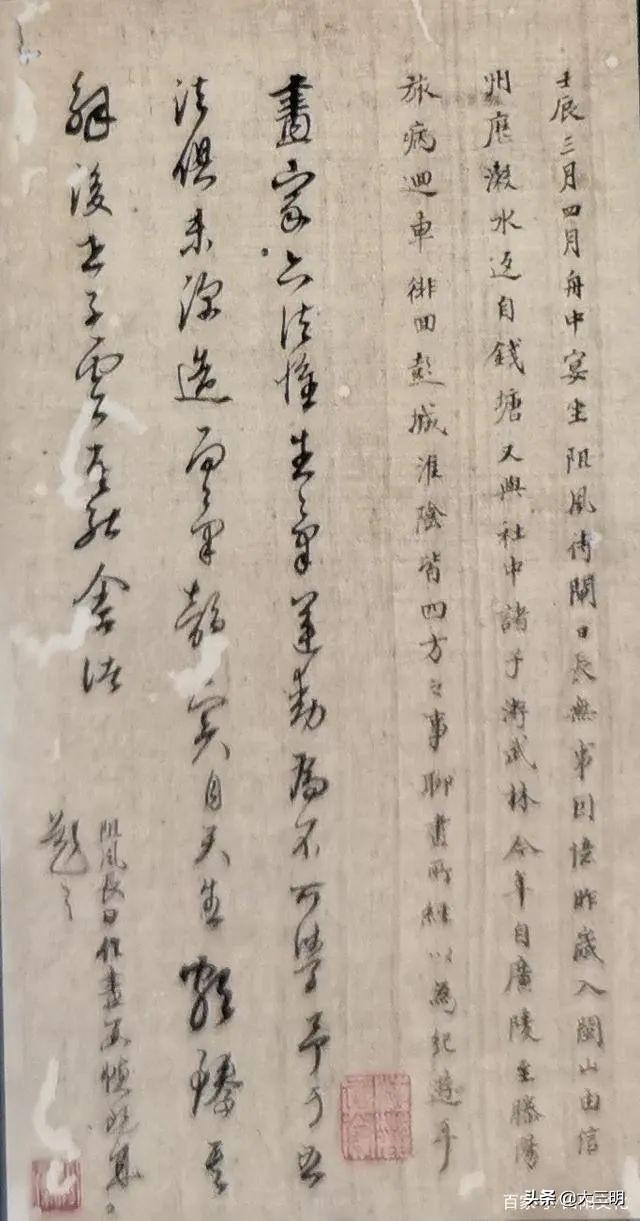 壬辰三月四月舟中宴坐阻風待閘日長無事因憶昨歲入閩山由信
州應溦水返自錢塘又與社中諸子游武林今年自廣陵至滕陽
旅病迴車徘回彭城淮陰皆四方之事聊畫所經以為紀遊耳
畫家六法惟生氣運動為不可學予于五
法俱未深造而氣韻實自天生難臻其
解後書子雲
阻風長日作畫
題之
頭条 @大三明